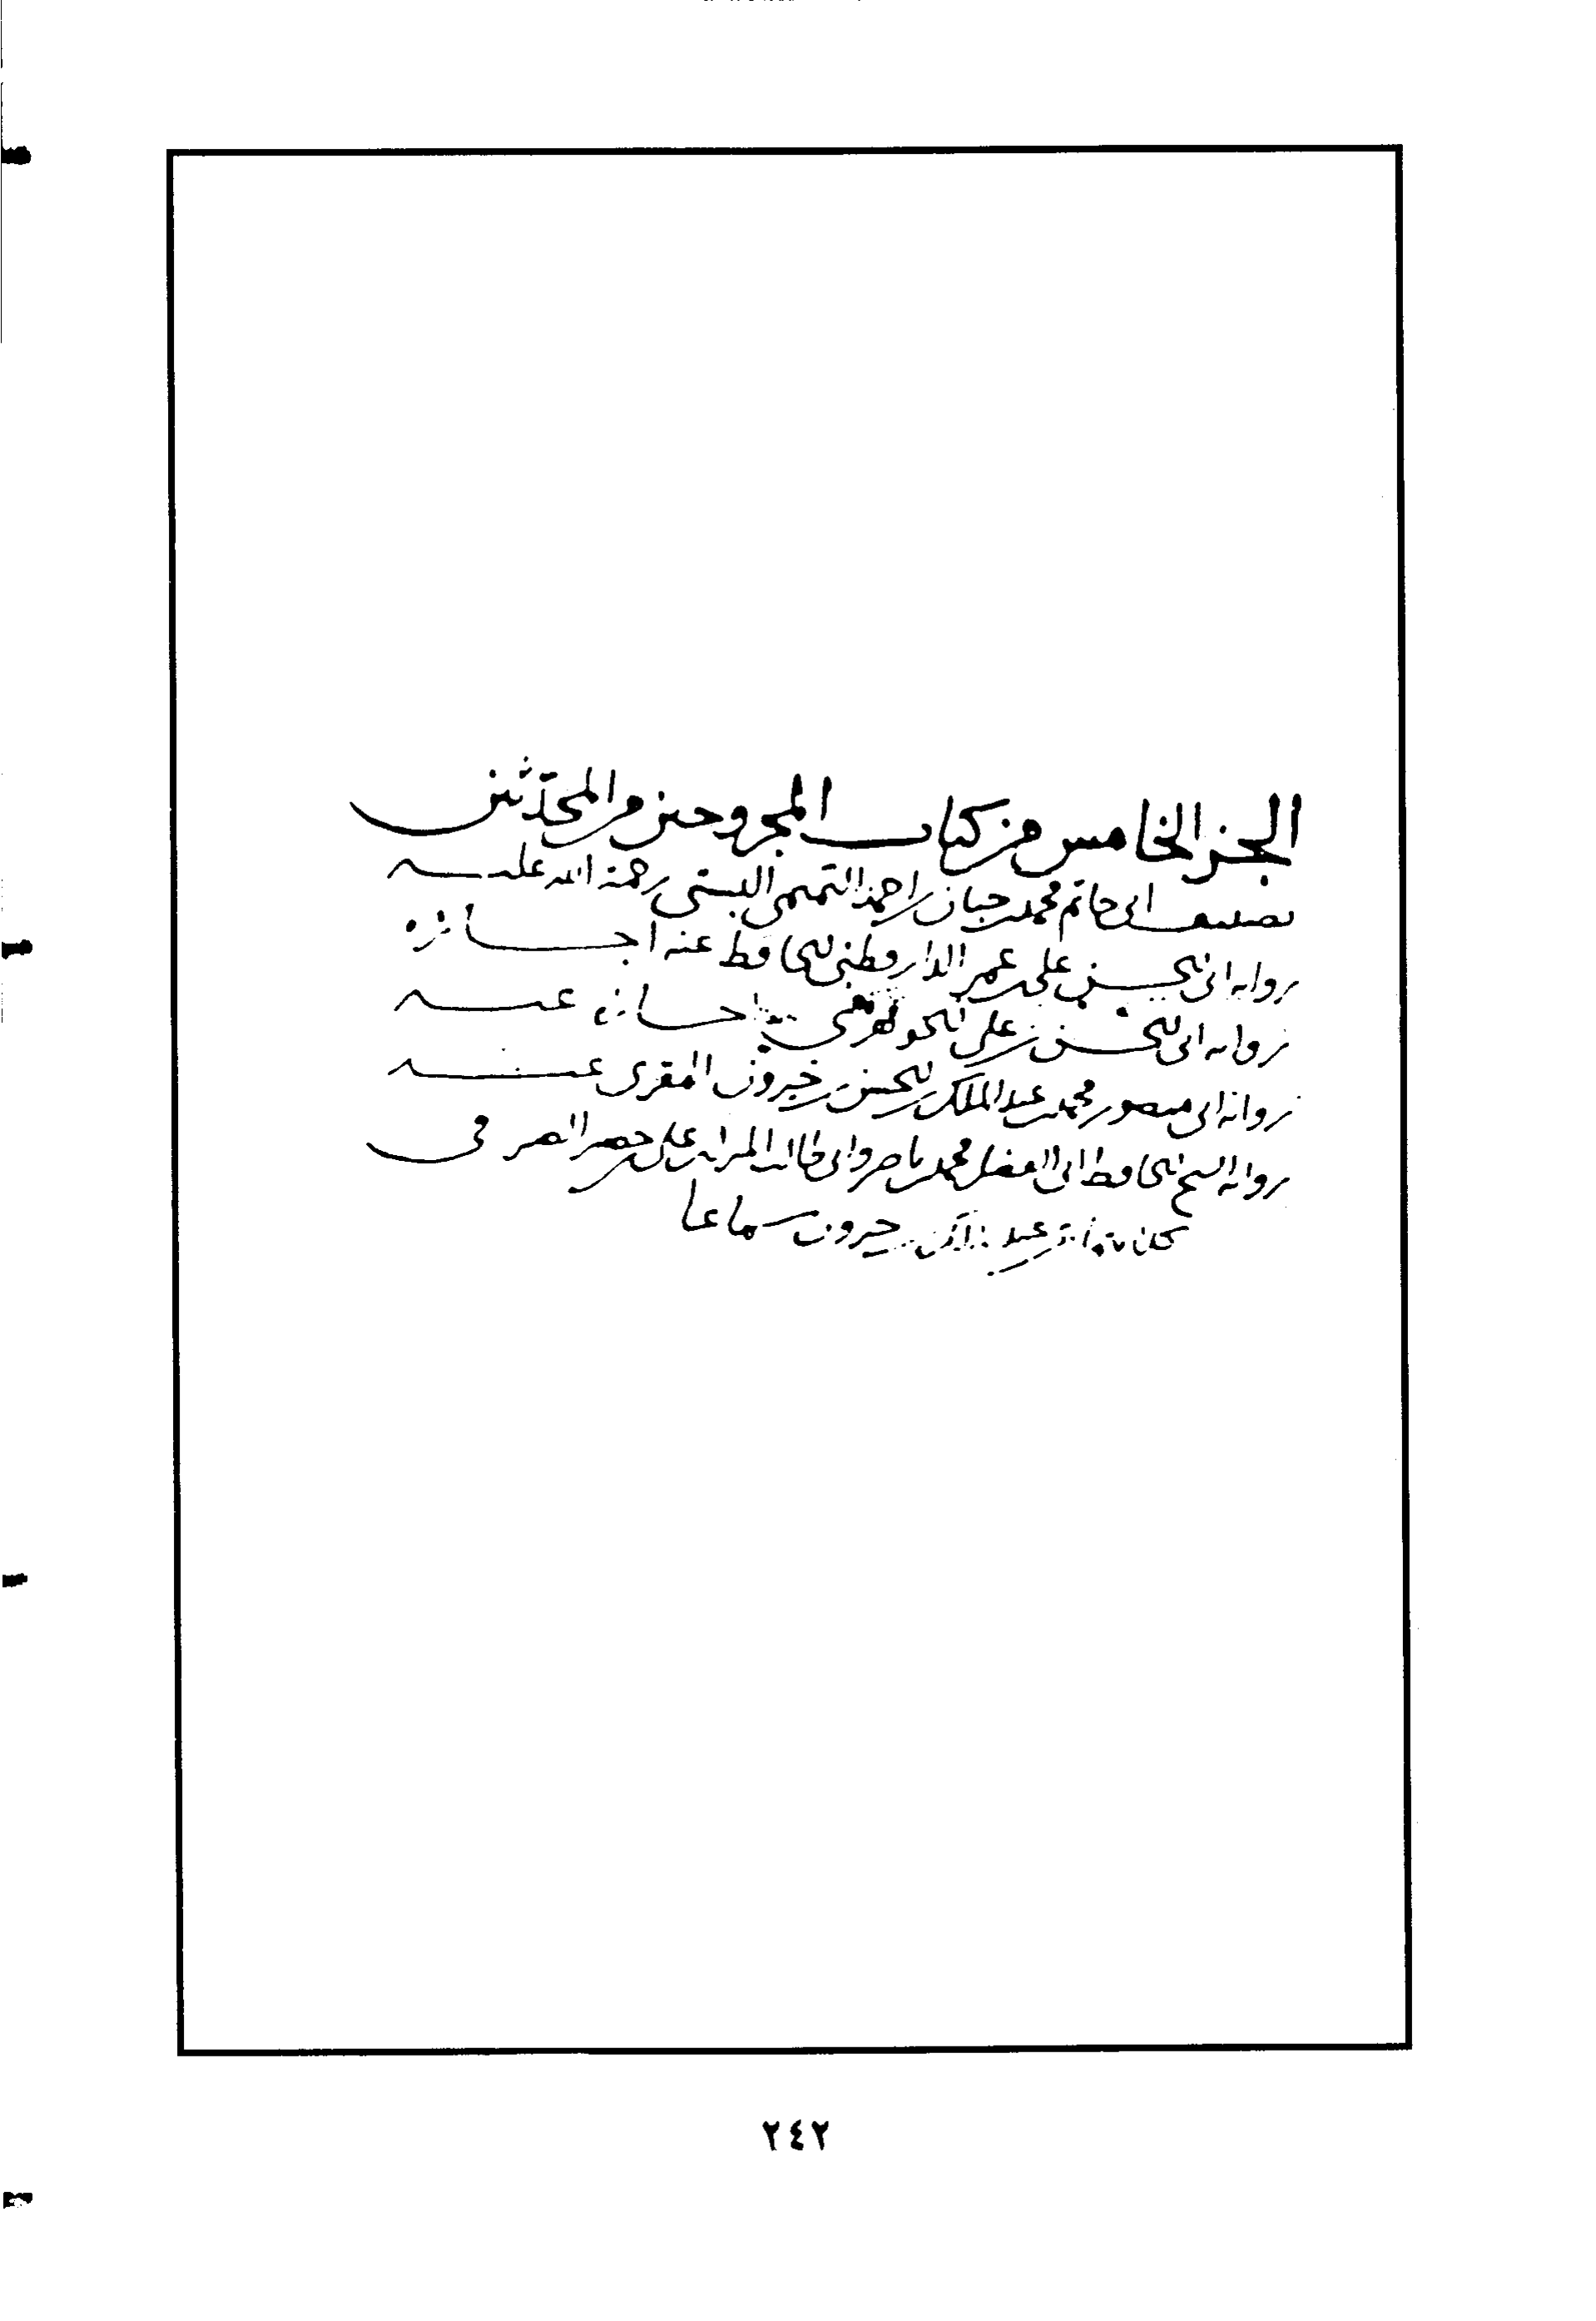 الجز الخامس من كتاب المجروحين من المحدثين
تصنيف ابى حاتم محمد بن حبان بن احمد التميمي البستى رحمة الله عليه
رواية ابى الحسن على بن عمر الدارقطنى الحافظ عنه اجازه
رواية ابى الحسن بن على الجوهرى اجازه عنه
رواية ابى منصور محمد بن عبد الملك بن الحسن بن خيرون المقرى عنه
رواية الشيخ الحافظ ابى الفضل محمد بن ناصر وابى طالب المبارك بن على بن خضير الصيرفى
عبد خيرون سماعا
٢٤٢